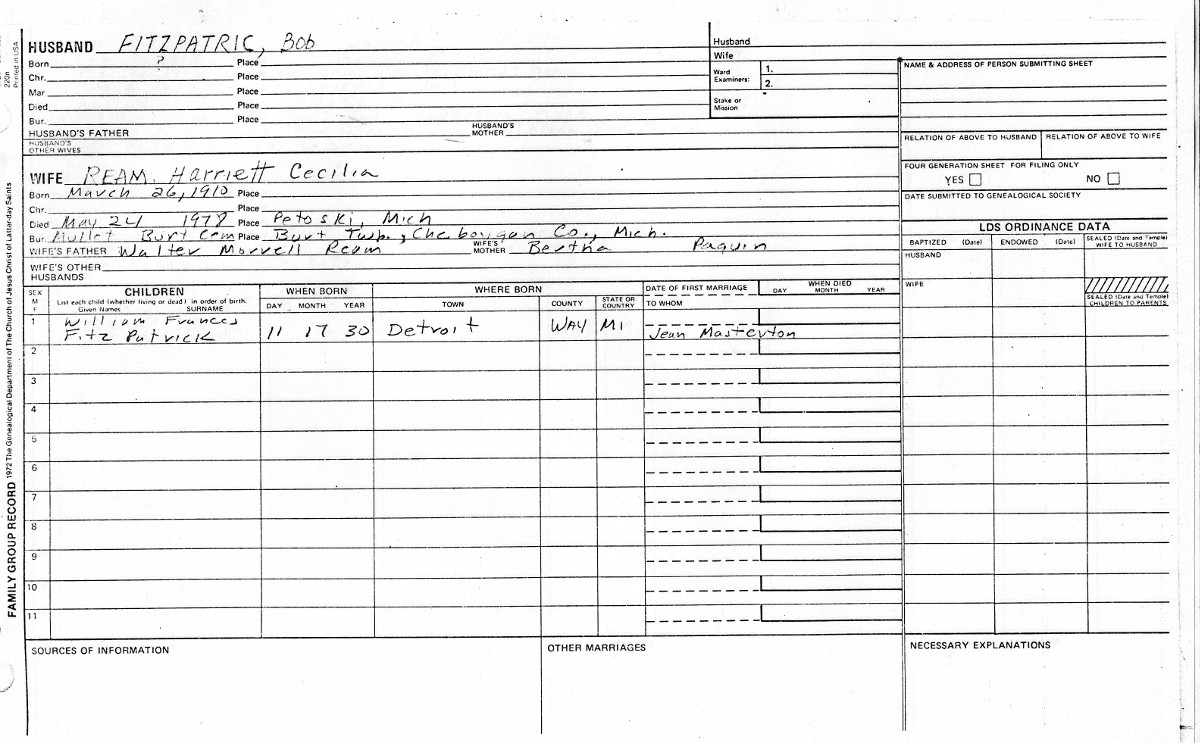 HUSBAND FITZPATRIC, Bob
Born ? Place
Chr. Place
Mar Place
Died Place
Bur. Place
HUSBAND'S FATHER HUSBAND'S MOTHER
HUSBAND'S OTHER WIVES
Husband
Wife
Ward Examiners: 1.
2.
Stake or Mission
NAME & ADDRESS OF PERSON SUBMITTING SHEET
RELATION OF ABOVE TO HUSBAND RELATION OF ABOVE TO WIFE
FOUR GENERATION SHEET FOR FILING ONLY
YES NO
DATE SUBMITTED TO GENEALOGICAL SOCIETY
WIFE REAM, Harriett Cecilia
Born March 26, 1910 Place
Chr. Place
Died May 24 1978 Place Petoski, Mich
Bur. Mullet Burt Cem Place Burt Twp., Cheboygan Co., Mich.
WIFE'S FATHER Walter Morrell Ream WIFE'S MOTHER Bertha Paquin
WIFE'S OTHER HUSBANDS
LDS ORDINANCE DATA
BAPTIZED (Date) ENDOWED (Date) SEALED (Date and Temple) WIFE TO HUSBAND
HUSBAND
WIFE
SEALED (Date and Temple) CHILDREN TO PARENTS
SEX M F
CHILDREN
List each child (whether living or dead) in order of birth.
Given Names SURNAME
WHEN BORN
DAY MONTH YEAR
WHERE BORN
TOWN COUNTY STATE OR COUNTRY
DATE OF FIRST MARRIAGE
TO WHOM
WHEN DIED
DAY MONTH YEAR
1 William Frances
Fitz Patrick 11 17 30 Detroit WAY MI Jean Masterton
2
3
4
5
6
7
8
9
10
11
SOURCES OF INFORMATION OTHER MARRIAGES NECESSARY EXPLANATIONS
FAMILY GROUP RECORD 1972 The Genealogical Department of The Church of Jesus Christ of Latter-day Saints
220n
Printed in USA